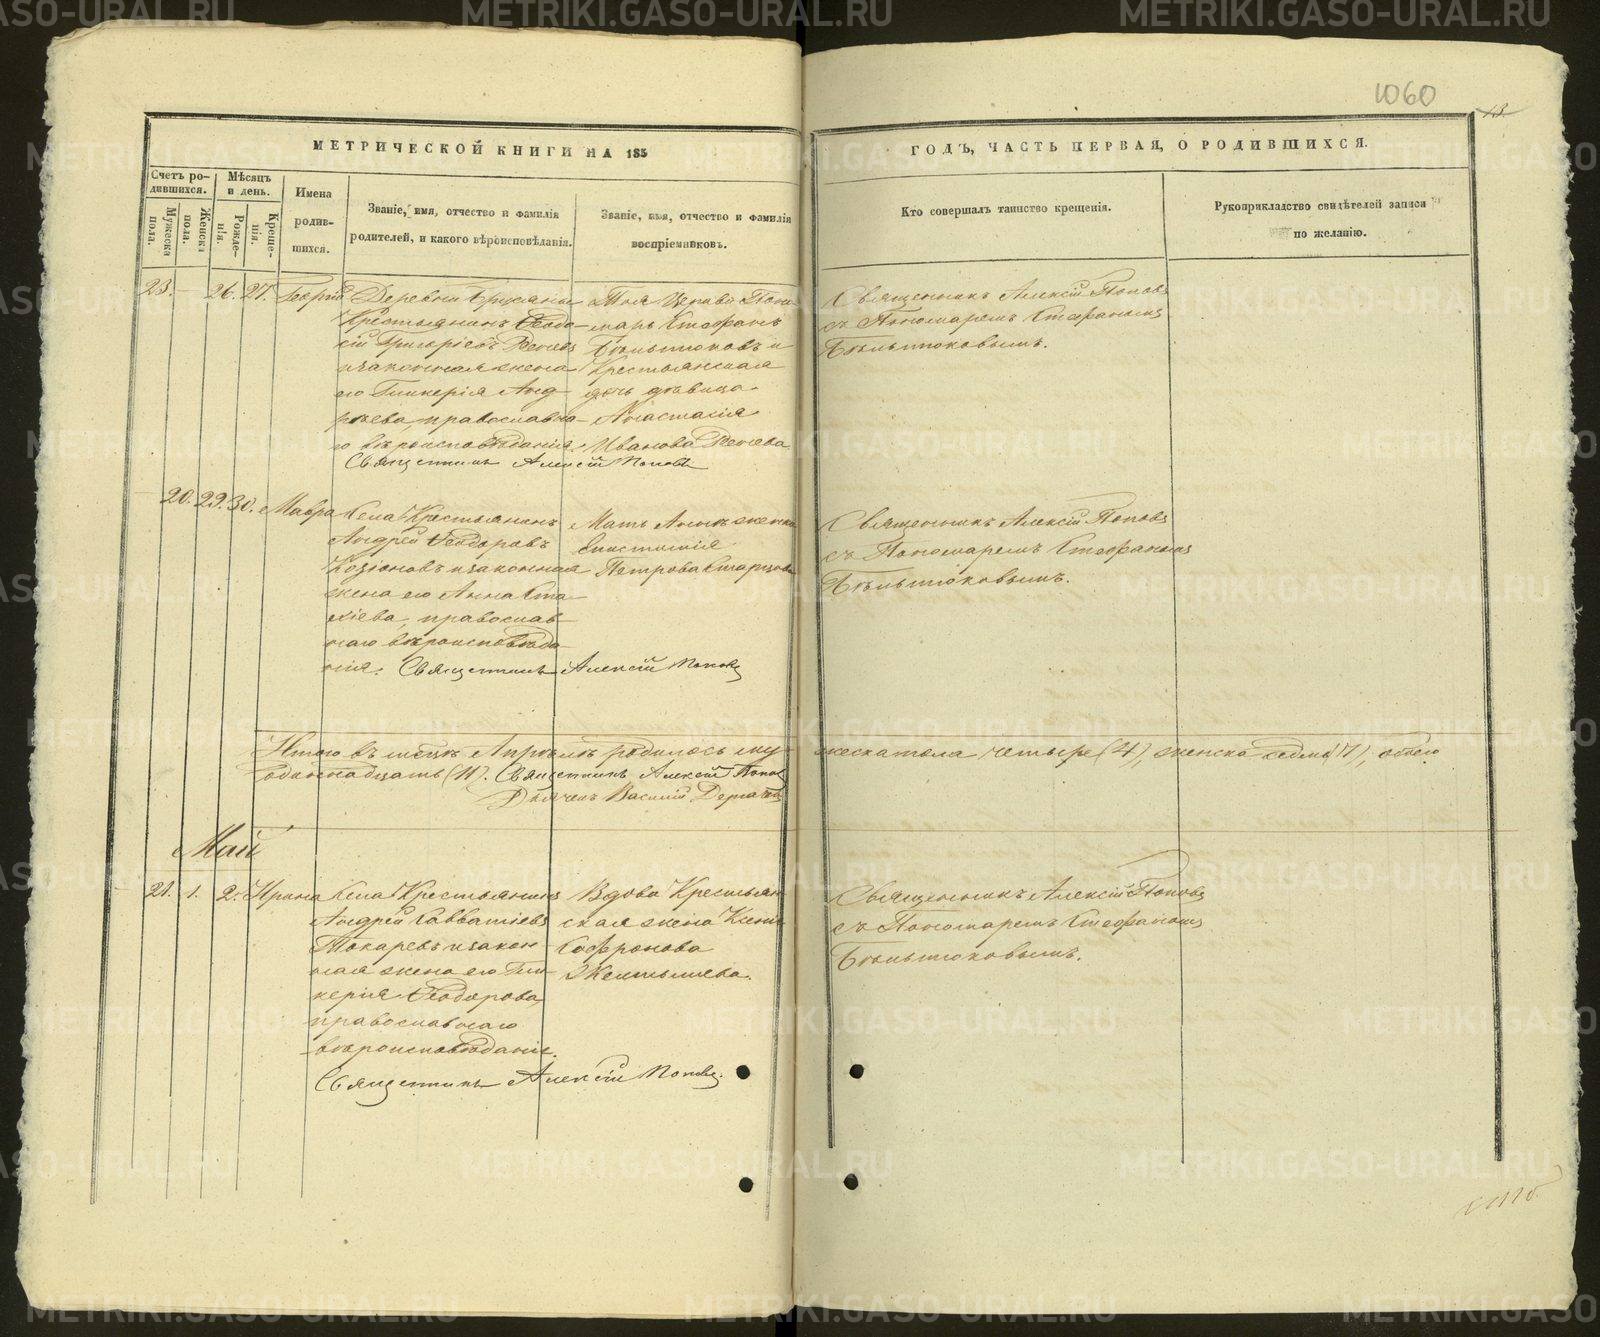 1060
13.
МЕТРИЧЕСКОЙ КНИГИ НА 185
ГОДЪ, ЧАСТЬ ПЕРВАЯ, О РОДИВШИХСЯ.
Счетъ ро-
дившихся.
Мужеска
пола.
Женска
пола.
Мѣсяцъ
и день.
Рожде-
нія.
Креще-
нія.
Имена
родив-
шихся.
Званіе, имя, отчество и фамилія
родителей, и какого вѣроисповѣданія.
Званіе, имя, отчество и фамилія
воспріемниковъ.
Кто совершалъ таинство крещенія.
Рукоприкладство свидѣтелей записи
по желанію.
23. — 26. 27. Георгій
Деревни
Крестьянинъ Ѳеодо-
сій Григоріевъ
и законная жена
его Гликерія Анд-
реева, православна-
го вѣроисповѣданія.
Священникъ Алексій Поповъ
Тоя Церкви Поно-
марь Стефанъ
и
Крестьянская
дочь дѣвица
Анастасія
Иванова
Священникъ Алексій Поповъ
съ Пономаремъ Стефаномъ
20. 29. 30. Мавра
Села Крестьянинъ
Андрей Ѳеодоровъ
и законная
жена его Анна
православ-
наго вѣроисповѣда-
нія. Священникъ Алексій Поповъ
Петрова
Священникъ Алексій Поповъ
съ Пономаремъ Стефаномъ
Итого въ Апрѣлѣ родилось му-
жеска пола четыре (4), женска седмь (7), обоего
одиннадцать (11). Священникъ Алексій Поповъ
Дьячекъ Василій
Май
21. 1. 2. Ирина
Села Крестьянинъ
Андрей Савватіевъ
Токаревъ и закон-
ная жена его Гли-
керія Ѳеодорова,
православнаго
вѣроисповѣданія.
Священникъ Алексій Поповъ.
Вдова Крестьян-
ская жена
Софронова
Желтышева.
Священникъ Алексій Поповъ
съ Пономаремъ Стефаномъ
METRIKI.GASO-URAL.RU